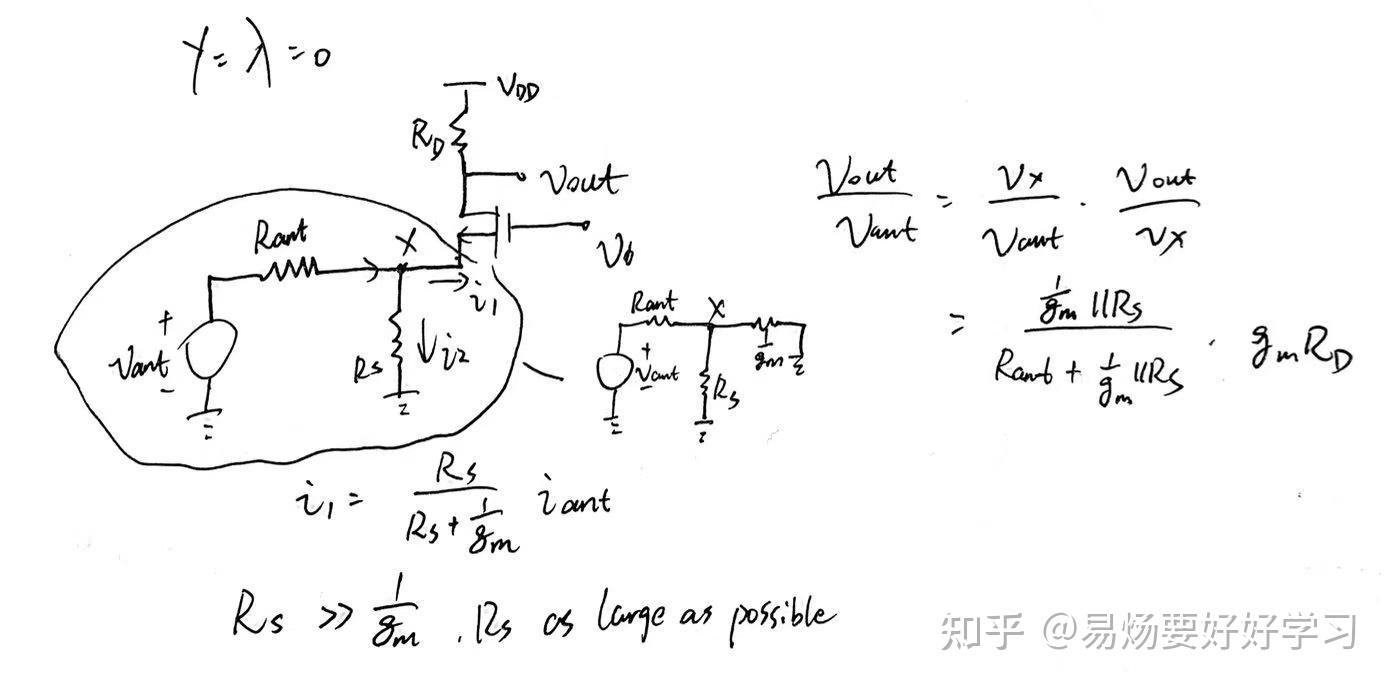 γ = λ = 0
VDD
RD
Vout
Vb
Rant
X
i1
+
Vant
-
Rs
i2
Rant
X
+
Vant
-
1/gm
Rs
Vout/Vant = Vx/Vant · Vout/Vx
= (1/gm || Rs)/(Rant + 1/gm || Rs) · gmRD
i1 = Rs/(Rs + 1/gm) iant
Rs >> 1/gm . Rs as large as possible
知乎 @易炀要好好学习